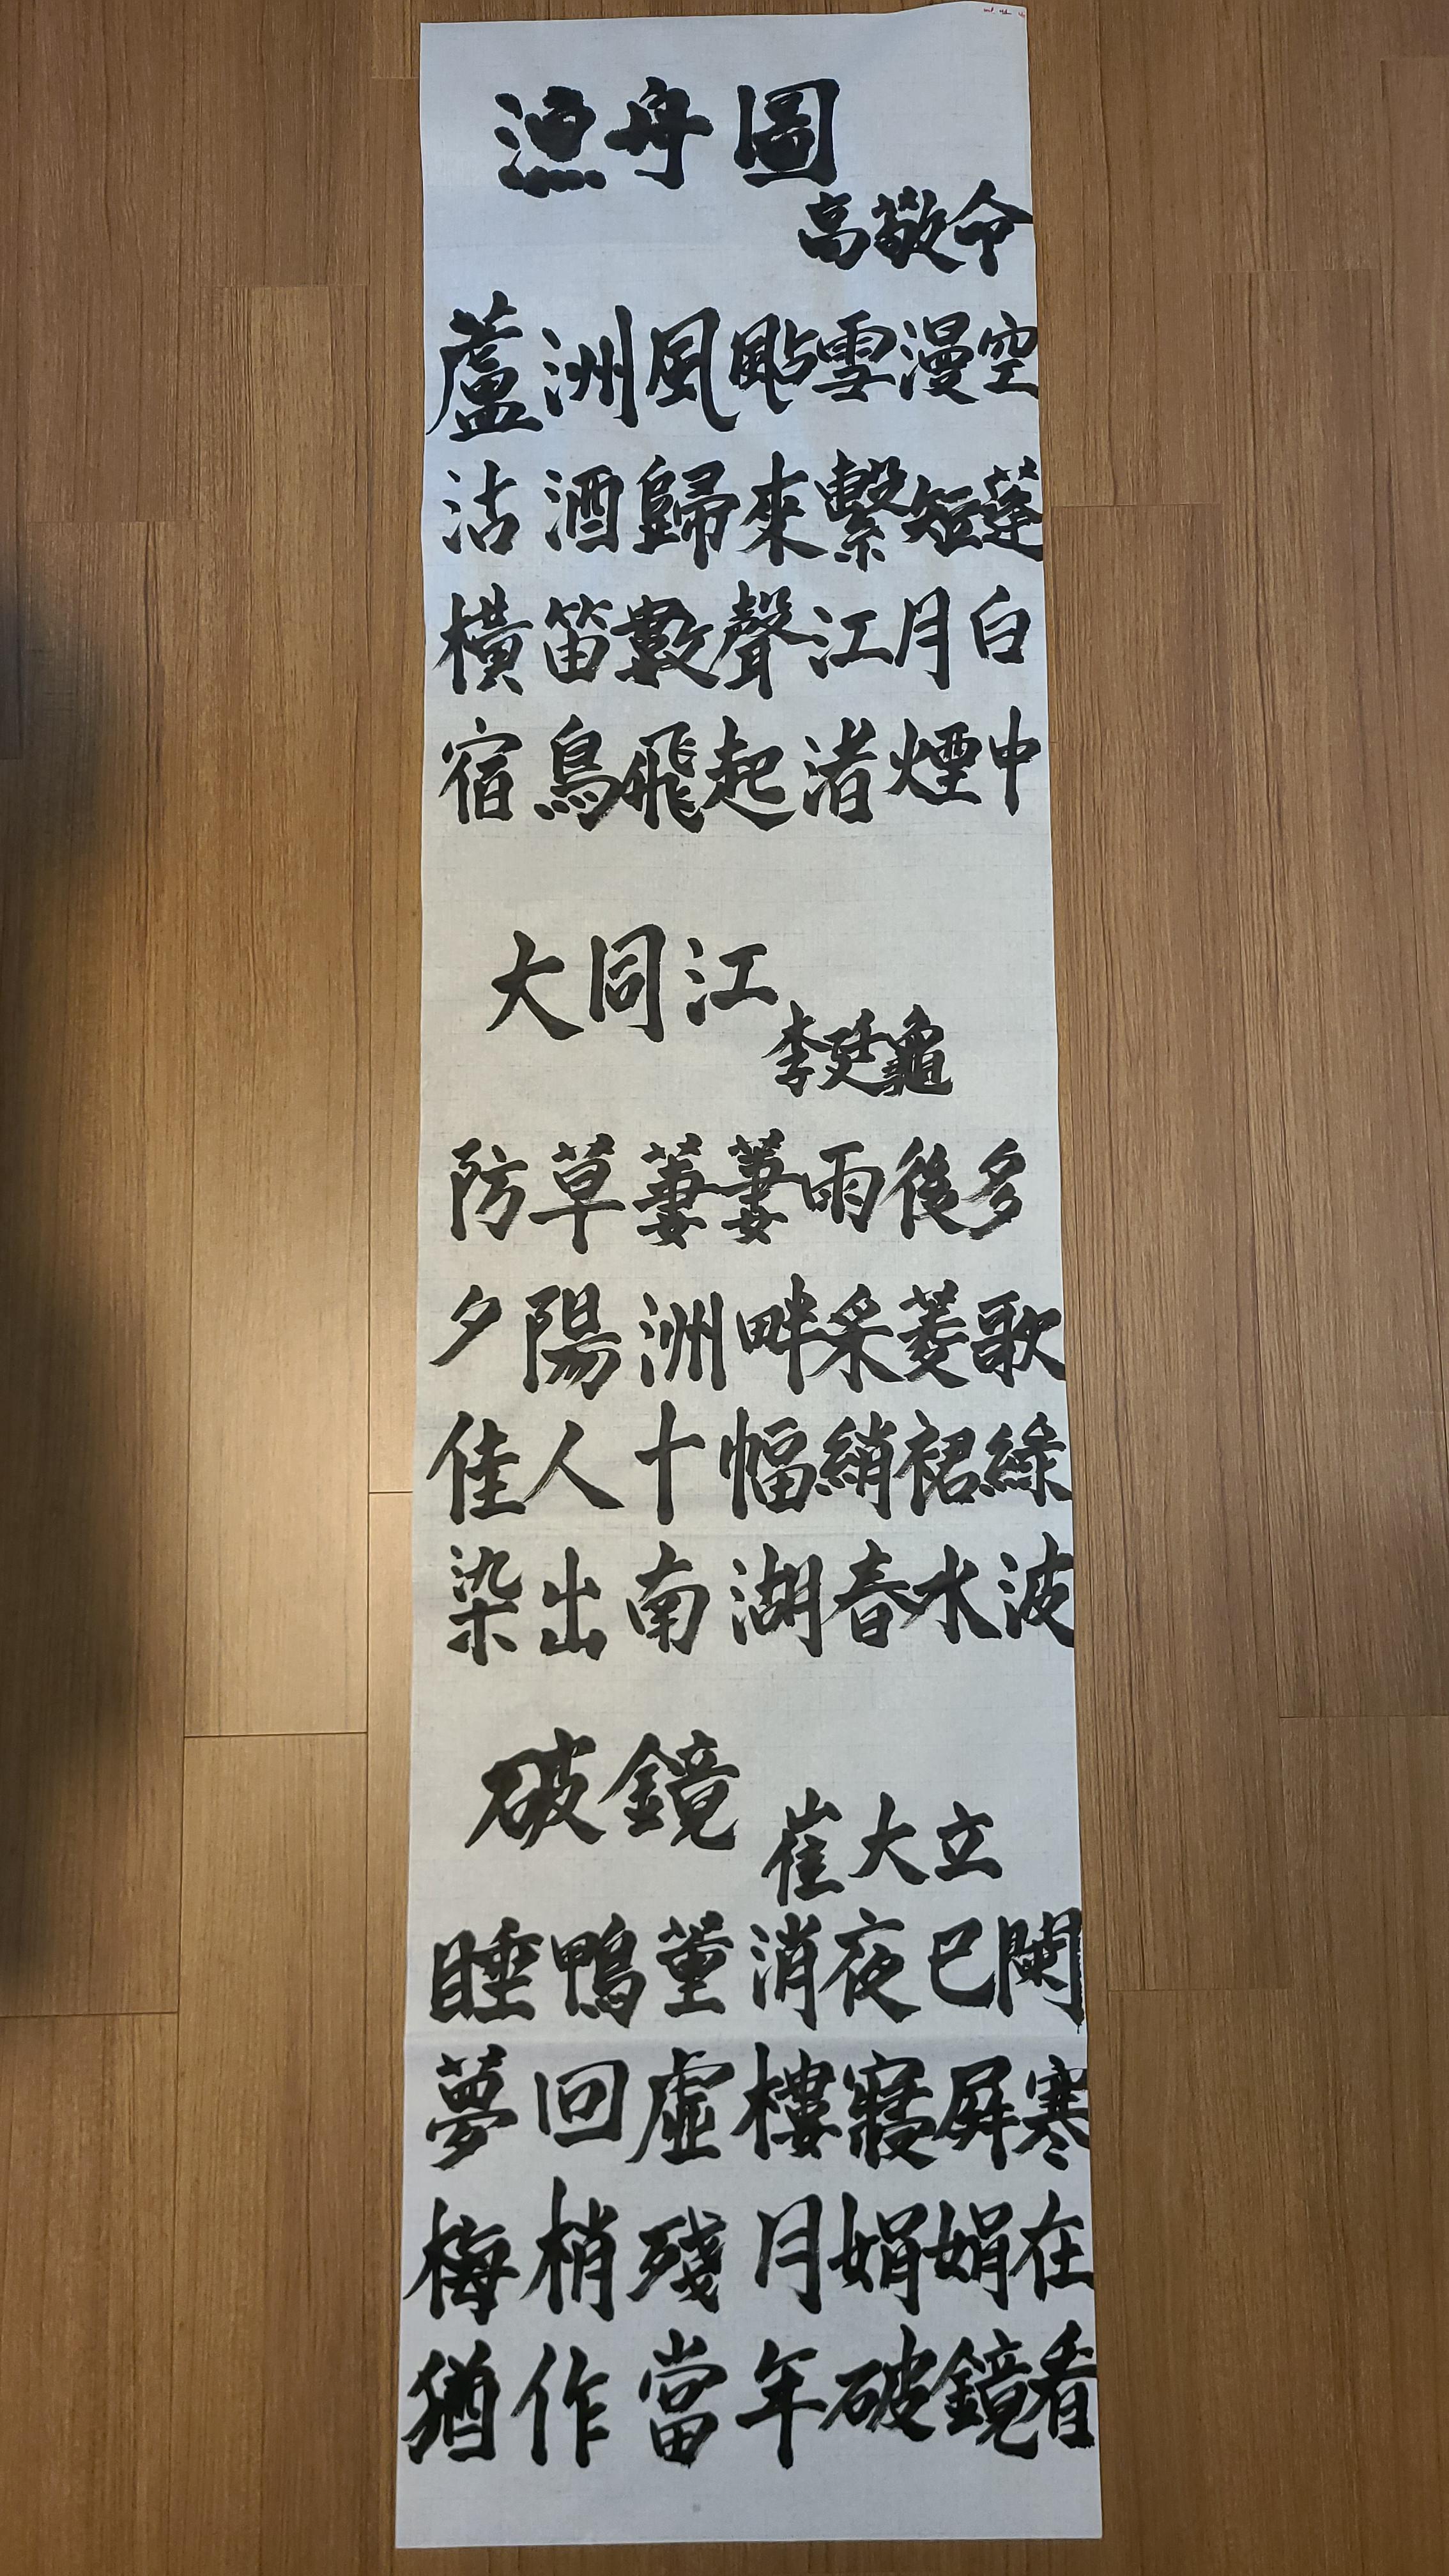 漁舟圖
高敬命
蘆洲風颭雪漫空
沽酒歸來繫短蓬
橫笛數聲江月白
宿鳥飛起渚煙中
大同江
李廷龜
防草萋萋雨後多
夕陽洲畔采菱歌
佳人十幅綃裙綠
染出南湖春水波
破鏡
崔大立
睡鴨薰消夜已闌
夢回虛樓寢屏寒
梅梢殘月娟娟在
猶作當年破鏡看